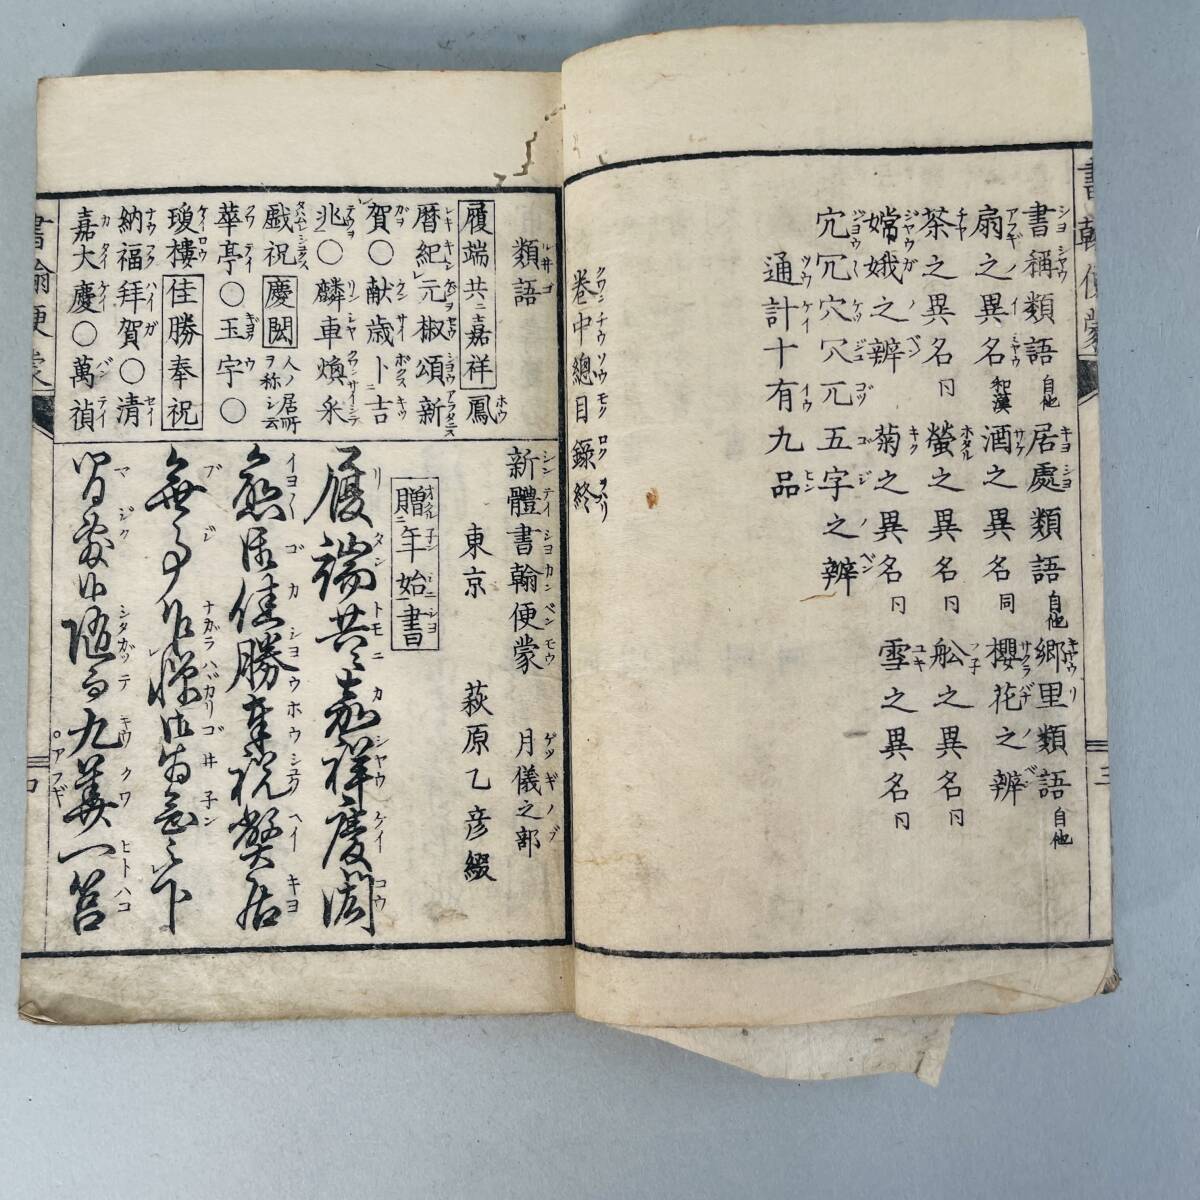 書翰便蒙
三
書稱類語 自他 居處類語 自他 郷里類語 自他
扇之異名 和漢 酒之異名 同 櫻花之辨
茶之異名 同 螢之異名 同 舩之異名 同
嫦娥之辨 菊之異名 同 雪之異名 同
宂冗穴冗兀五字之辨
通計十有九品
卷中總目録終
新體書翰便蒙 月儀之部
東京 萩原乙彦綴
類語
履端共ニ嘉祥 鳳
暦紀元椒頌新
賀〇献歳卜吉
兆〇麟車煥釆
戯祝 慶閎 人ノ居所ヲ称シ云
華亭〇玉宇〇
瓊樓 佳勝奉祝
納福拜賀〇清
嘉大慶〇萬禎
贈年始書
履端共ニ嘉祥慶閎
愈御佳勝奉祝弊居
無事乍憚御省念可被下
書翰便蒙